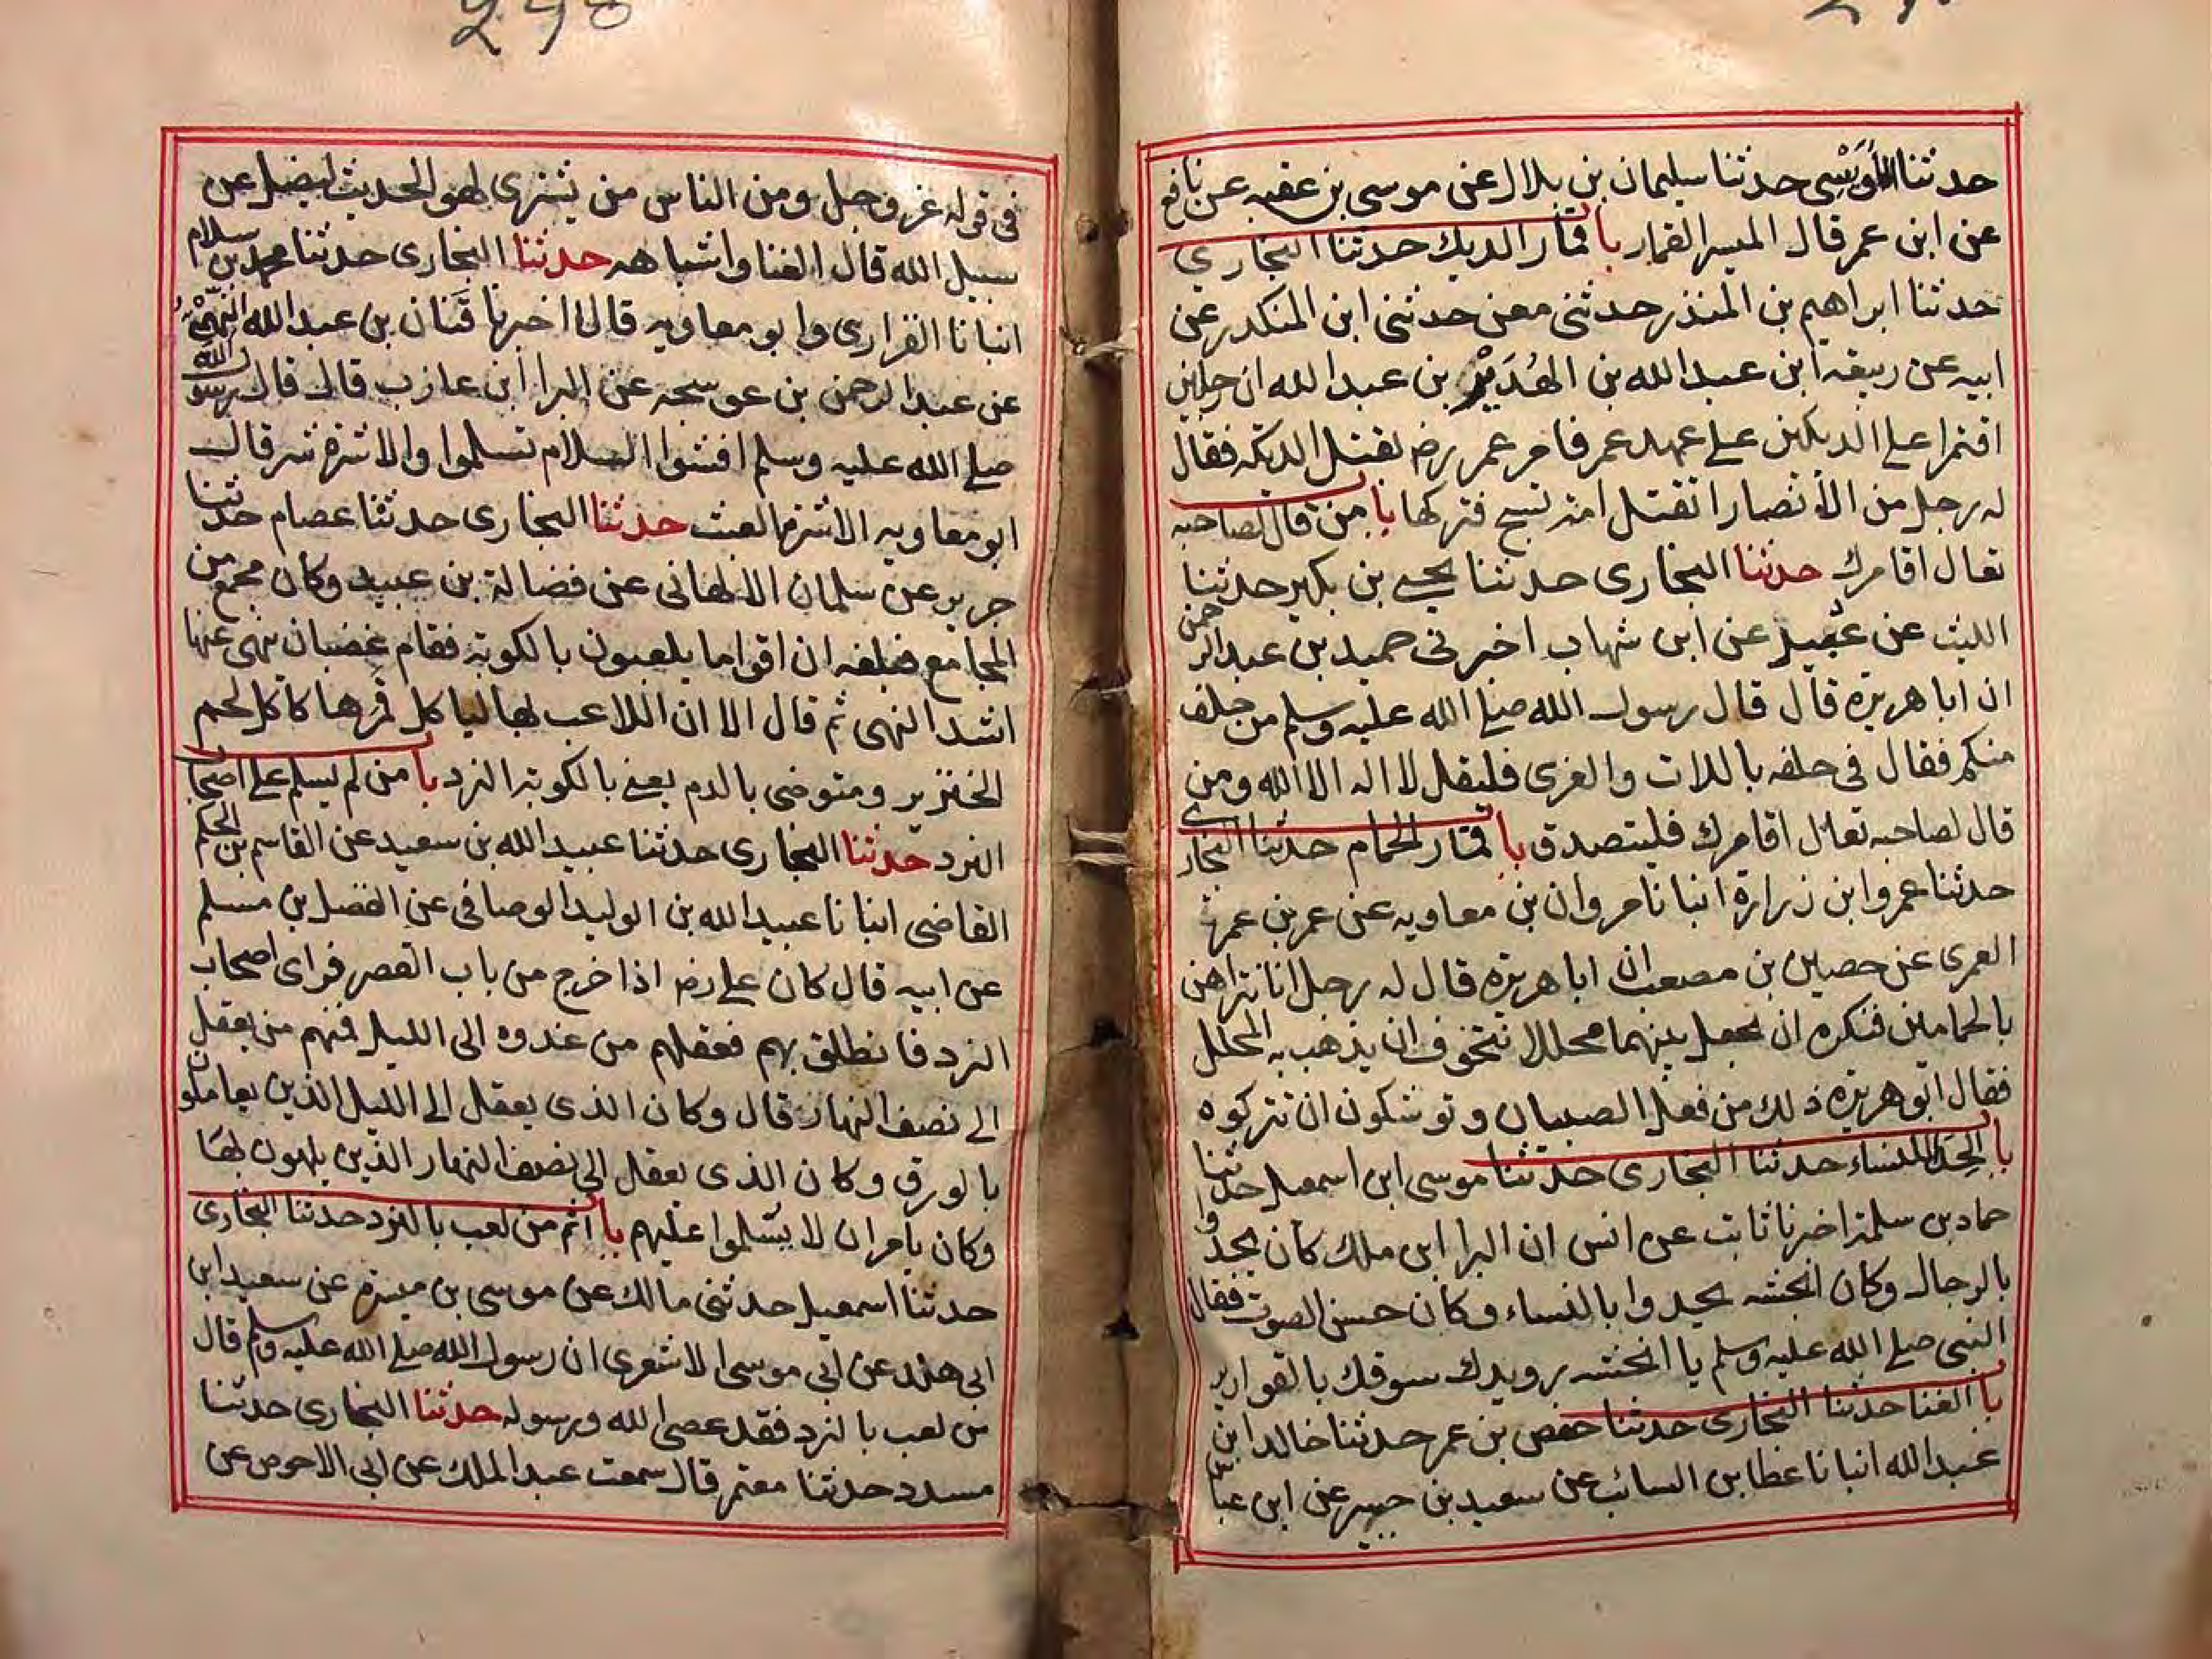 حدثنا الأويسي حدثنا سليمان بن بلال عن موسى بن عقبه عن نافع
عن ابن عمر قال الميسر القمار با قمار الديك حدثنا البخاري
حدثنا ابراهيم بن المنذر حدثنى معن حدثنى ابن المنكدر عن
ابيه عن ربيعة ابن عبد الله بن الهُدَيْر بن عبد الله ان رجلين
اقتمرا على الديكين على عهد عمر فامر عمر رض بقتل الديكه فقال
له رجل من الأنصار اتقتل امة تسبح فتركها با من قال لصاحبه
تعال اقامرك حدثنا البخارى حدثنا يحيى بن بكير حدثنا
الليث عن عقيل عن ابن شهاب اخبرنى حميد بن عبد الرحمن
ان ابا هريرة قال قال رسول الله صلى الله عليه وسلم من حلف
منكم فقال فى حلفه باللات والعزى فليقل لا اله الا الله ومن
قال لصاحبه تعال اقامرك فليتصدق با قمار الحمام حدثنا البخارى
حدثنا عمرو ابن زرارة انبانا مروان بن معاويه عن عمر بن حمزة
العمرى عن حصين بن مصعب ان ابا هريرة قال له رجل انا نتراهن
بالحمامين فنكره ان نجعل بينهما محللا نتخوف ان يذهب به المحلل
فقال ابو هريرة ذلك من فعل الصبيان وتوشكون ان تتركوه
با الحدا للنساء حدثنا البخارى حدثنا موسى ابن اسمعيل حدثنا
حماد بن سلمة اخبرنا ثابت عن انس ان البرا ابن ملك كان يحدوا
بالرجال وكان انجشه يحدوا بالنساء وكان حسن الصوت فقال
النبى صلى الله عليه وسلم يا انجشه رويدك سوقك بالقوارير
با الغنا حدثنا البخارى حدثنا حفص بن عمر حدثنا خالد ابن
عبد الله انبانا عطا بن السائب عن سعيد بن جبير عن ابن عباس
فى قوله عز وجل ومن الناس من يشترى لهو الحديث ليضل عن
سبيل الله قال الغنا واشباهه حدثنا البخارى حدثنا محمد بن سلام
انبانا الفزارى وابو معاويه قالا اخبرنا قَنان بن عبد الله النهمى
عن عبد الرحمن بن عوسجه عن البرا ابن عازب قال قال رسول الله
صلى الله عليه وسلم افشوا السلام تسلموا والاشرة شر قال
ابو معاويه الاشرة العبث حدثنا البخارى حدثنا عصام حدثنا
حريز عن سلمان الالهانى عن فضالة بن عبيد وكان مجمع من
المجامع فبلغه ان اقواما يلعبون بالكوبة فقام غضبان ينهى عنها
اشد النهى ثم قال الا ان اللاعب بها لياكل قمرها كاكل لحم
الخنزير ومتوضى بالدم يعنى بالكوبة النرد با من لم يسلم على اصحاب
النرد حدثنا البخارى حدثنا عبيد الله بن سعيد عن القاسم بن الحكم
القاضى انبانا عبيد الله بن الوليد الوصافى عن الفضل بن مسلم
عن ابيه قال كان على رض اذا خرج من باب القصر فراى اصحاب
النرد فانطلق بهم فعقلهم من غدوه الى الليل فمنهم من يعقل
الى نصف النهار قال وكان الذى يعقل الى الليل الذين يعاملون
بالورق وكان الذى يعقل الى نصف النهار الذين يلهون بها
وكان يامر ان لا يسلموا عليهم با اثم من لعب بالنرد حدثنا البخارى
حدثنا اسمعيل حدثنى مالك عن موسى بن ميسرة عن سعيد ابن
ابى هند عن ابى موسى الاشعرى ان رسول الله صلى الله عليه وسلم قال
من لعب بالنرد فقد عصى الله ورسوله حدثنا البخارى حدثنا
مسدد حدثنا معتمر قال سمعت عبد الملك عن ابى الاحوص عن